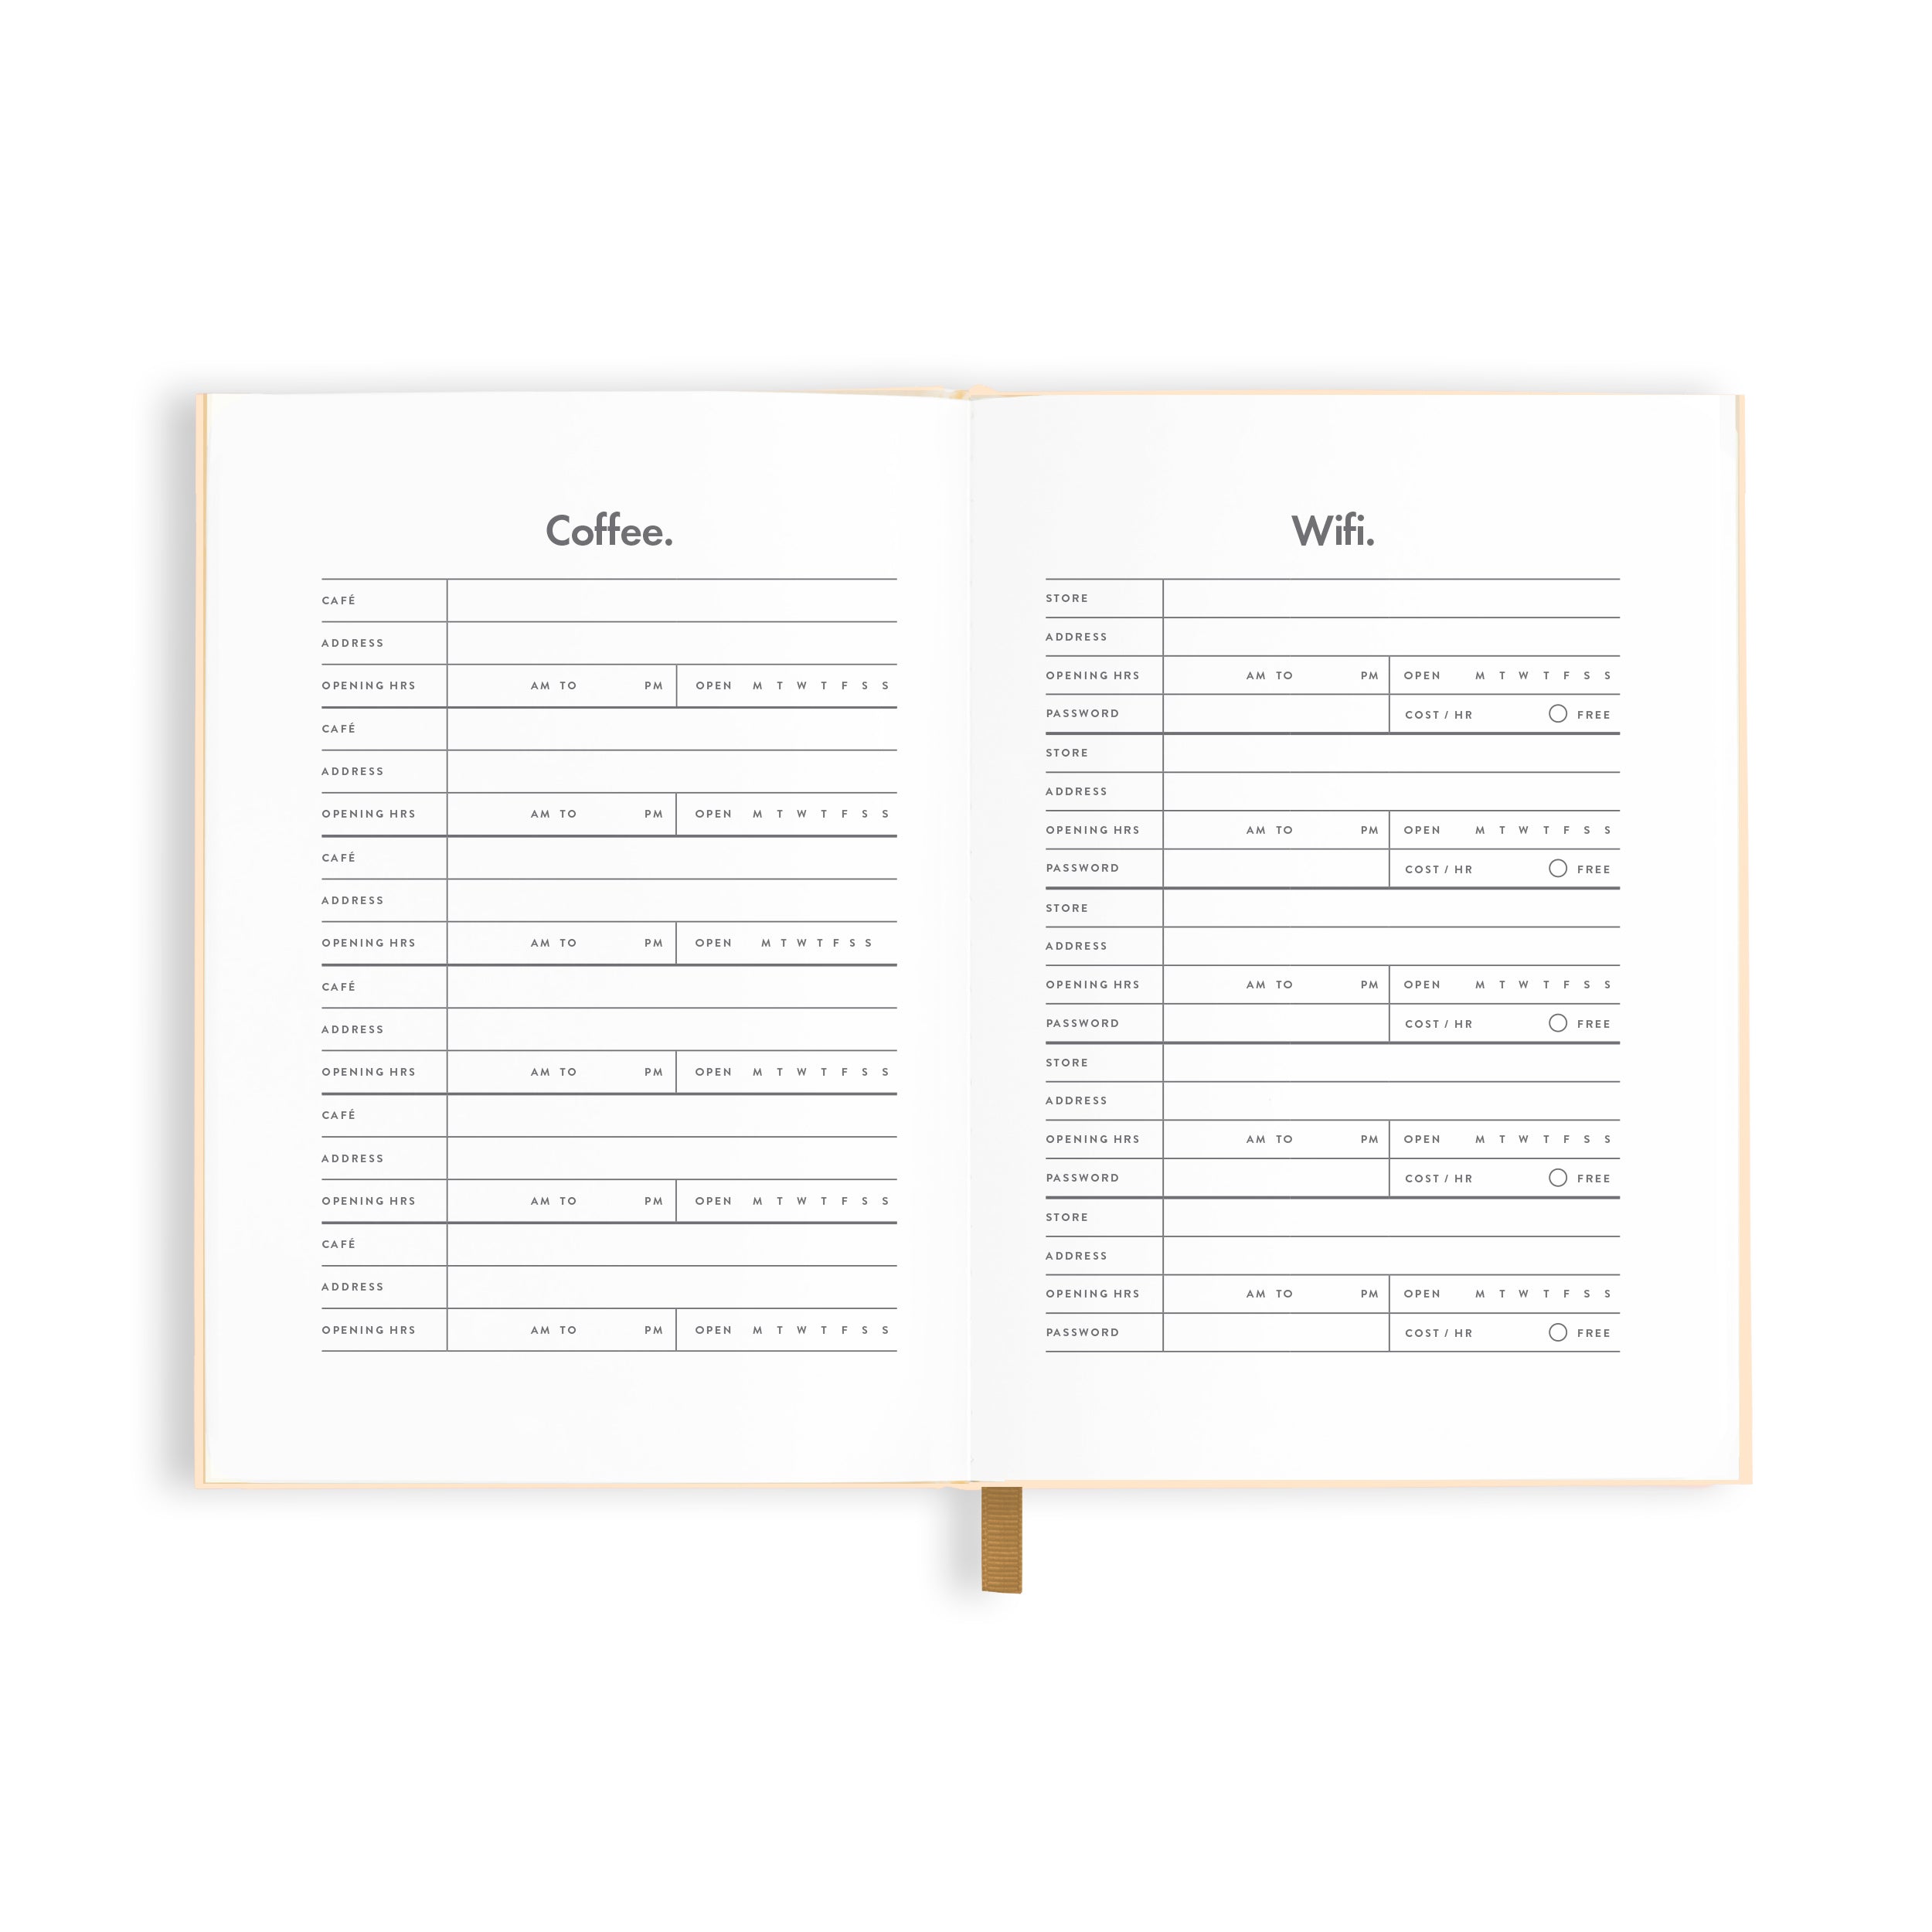 Coffee.
CAFÉ
ADDRESS
OPENING HRS AM TO PM OPEN M T W T F S S
CAFÉ
ADDRESS
OPENING HRS AM TO PM OPEN M T W T F S S
CAFÉ
ADDRESS
OPENING HRS AM TO PM OPEN M T W T F S S
CAFÉ
ADDRESS
OPENING HRS AM TO PM OPEN M T W T F S S
CAFÉ
ADDRESS
OPENING HRS AM TO PM OPEN M T W T F S S
CAFÉ
ADDRESS
OPENING HRS AM TO PM OPEN M T W T F S S
Wifi.
STORE
ADDRESS
OPENING HRS AM TO PM OPEN M T W T F S S
PASSWORD COST / HR FREE
STORE
ADDRESS
OPENING HRS AM TO PM OPEN M T W T F S S
PASSWORD COST / HR FREE
STORE
ADDRESS
OPENING HRS AM TO PM OPEN M T W T F S S
PASSWORD COST / HR FREE
STORE
ADDRESS
OPENING HRS AM TO PM OPEN M T W T F S S
PASSWORD COST / HR FREE
STORE
ADDRESS
OPENING HRS AM TO PM OPEN M T W T F S S
PASSWORD COST / HR FREE